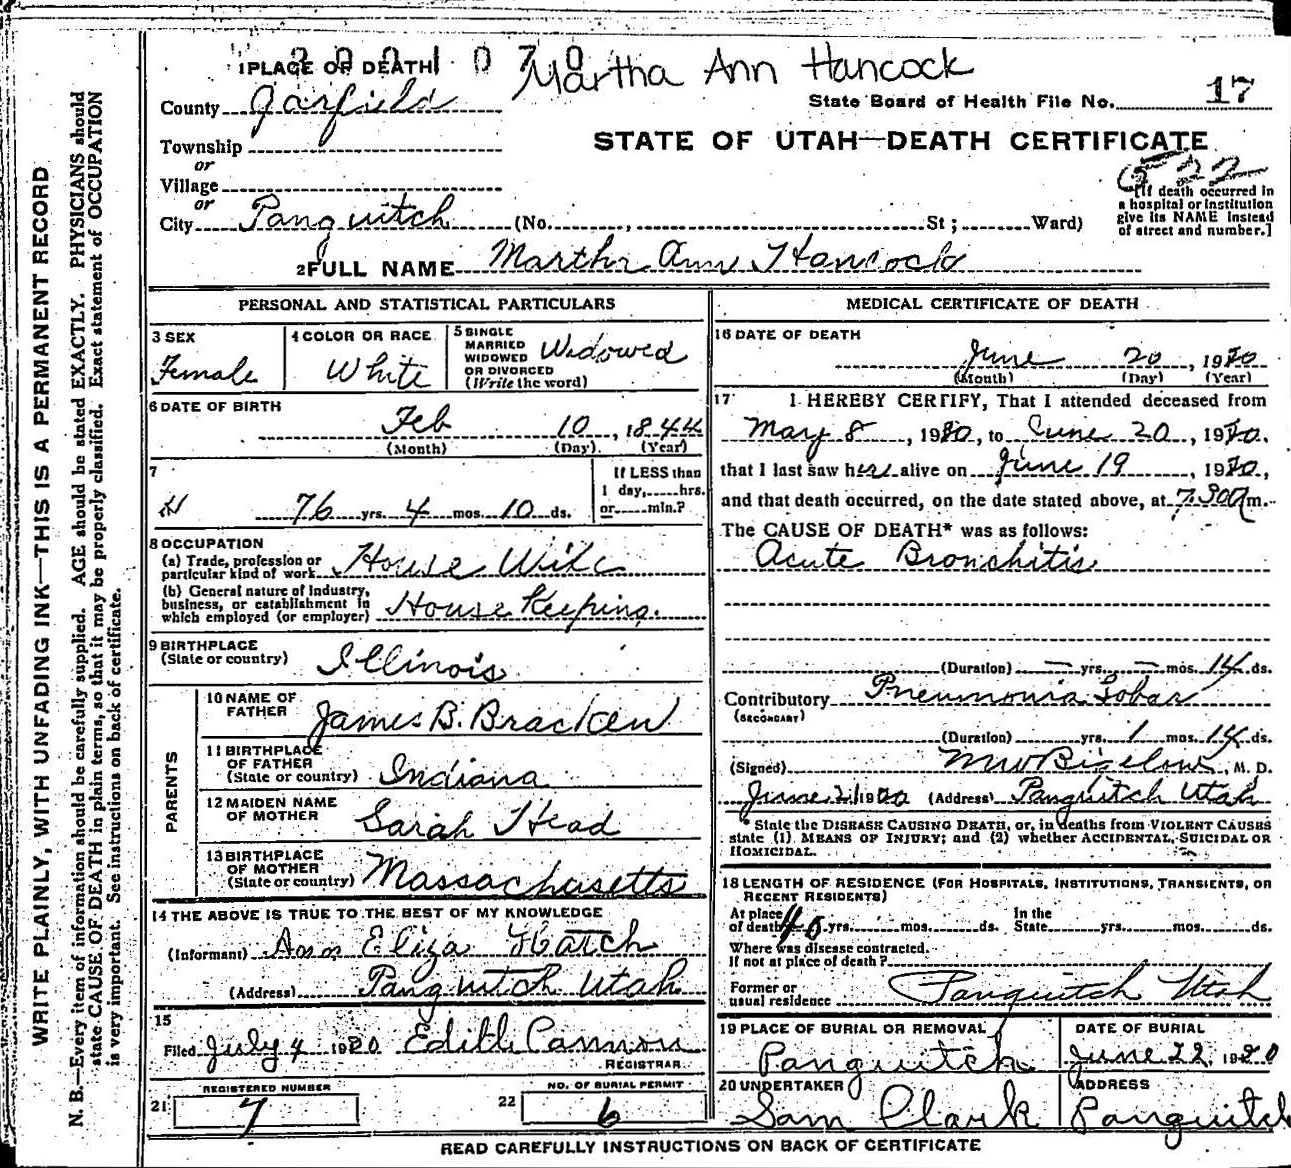 2001070
Martha Ann Hancock
1 PLACE OF DEATH
County Garfield
State Board of Health File No. 17
Township
or
Village
or
STATE OF UTAH—DEATH CERTIFICATE
522
[If death occurred in
a hospital or institution
give its NAME instead
of street and number.]
City Panguitch (No. , St; Ward)
2 FULL NAME Martha Ann Hancock
PERSONAL AND STATISTICAL PARTICULARS
3 SEX
Female
4 COLOR OR RACE
White
5 SINGLE
MARRIED
WIDOWED
OR DIVORCED
(Write the word)
Widowed
6 DATE OF BIRTH
Feb 10, 1844
(Month) (Day) (Year)
7
76 yrs. 4 mos. 10 ds.
If LESS than
1 day, hrs.
or min.?
8 OCCUPATION
(a) Trade, profession or
particular kind of work House Wife
(b) General nature of industry,
business, or establishment in
which employed (or employer) House Keeping.
9 BIRTHPLACE
(State or country) Illinois
PARENTS
10 NAME OF
FATHER James B. Bracken
11 BIRTHPLACE
OF FATHER
(State or country) Indiana
12 MAIDEN NAME
OF MOTHER Sarah Head
13 BIRTHPLACE
OF MOTHER
(State or country) Massachusetts
14 THE ABOVE IS TRUE TO THE BEST OF MY KNOWLEDGE
(Informant) Ann Eliza Hatch
(Address) Panguitch Utah
15
Filed July 4 1920 Edith Cannon
REGISTRAR
REGISTERED NUMBER
21 7
NO. OF BURIAL PERMIT
22 6
MEDICAL CERTIFICATE OF DEATH
16 DATE OF DEATH
June 20, 1920
(Month) (Day) (Year)
17 I HEREBY CERTIFY, That I attended deceased from
May 8, 1920, to June 20, 1920.
that I last saw her alive on June 19, 1920,
and that death occurred, on the date stated above, at 7.30 A m.
The CAUSE OF DEATH* was as follows:
Acute Bronchitis
(Duration) — yrs. — mos. 14 ds.
Contributory Pneumonia Lobar
(SECONDARY)
(Duration) yrs. 1 mos. 14 ds.
(Signed) M W Bigelow, M. D.
June 21 1920 (Address) Panguitch Utah
* State the DISEASE CAUSING DEATH, or, in deaths from VIOLENT CAUSES
state (1) MEANS OF INJURY; and (2) whether ACCIDENTAL, SUICIDAL OR
HOMICIDAL.
18 LENGTH OF RESIDENCE (FOR HOSPITALS, INSTITUTIONS, TRANSIENTS, OR
RECENT RESIDENTS)
At place
of death 40 yrs. mos. ds.
In the
State yrs. mos. ds.
Where was disease contracted.
If not at place of death?
Former or
usual residence Panguitch Utah
19 PLACE OF BURIAL OR REMOVAL
Panguitch
DATE OF BURIAL
June 22 1920
20 UNDERTAKER
Sam Clark
ADDRESS
Panguitch
READ CAREFULLY INSTRUCTIONS ON BACK OF CERTIFICATE
WRITE PLAINLY, WITH UNFADING INK—THIS IS A PERMANENT RECORD
N. B.—Every item of information should be carefully supplied. AGE should be stated EXACTLY. PHYSICIANS should
state CAUSE OF DEATH in plain terms, so that it may be properly classified. Exact statement of OCCUPATION
is very important. See instructions on back of certificate.